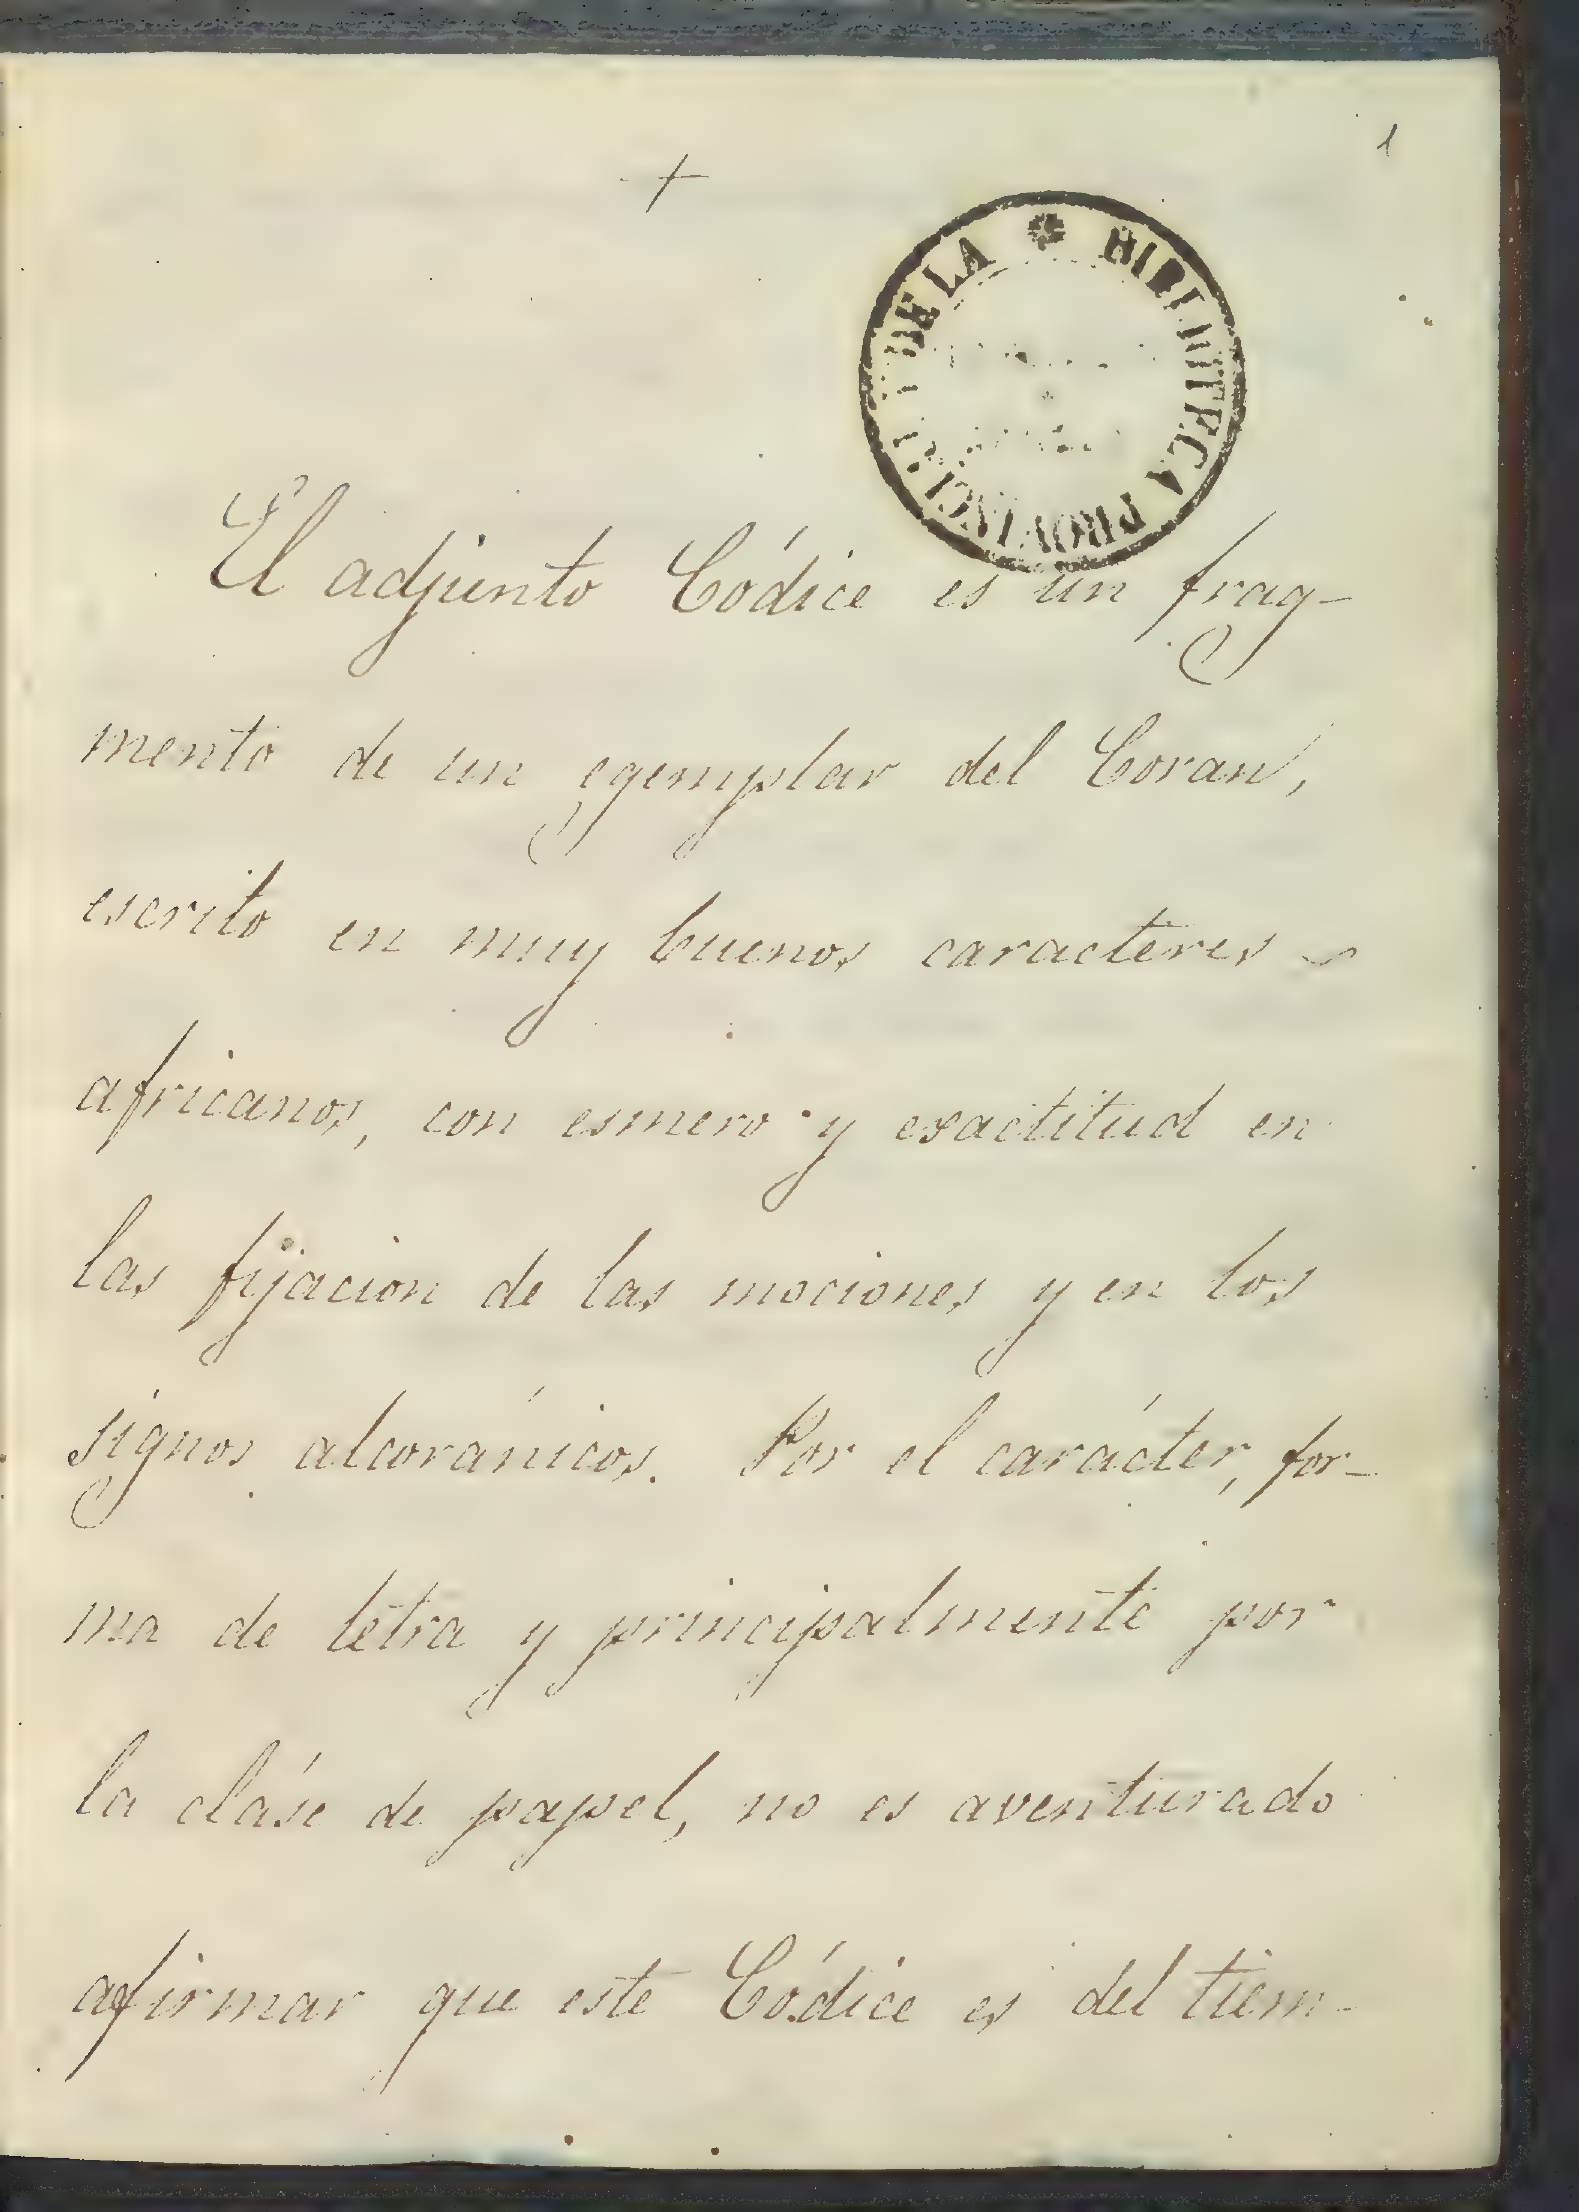 1
+
BIBLIOTECA PROVINCIAL DE LA
El adjunto Códice es un frag-
mento de un egemplar del Coran,
escrito en muy buenos caracteres
africanos, con esmero y exactitud en
las fijacion de las mociones y en los
signos alcoránicos. Por el carácter, for-
ma de letra y principalmente por
la cláse de papel, no es aventurado
afirmar que este Códice es del tiem-